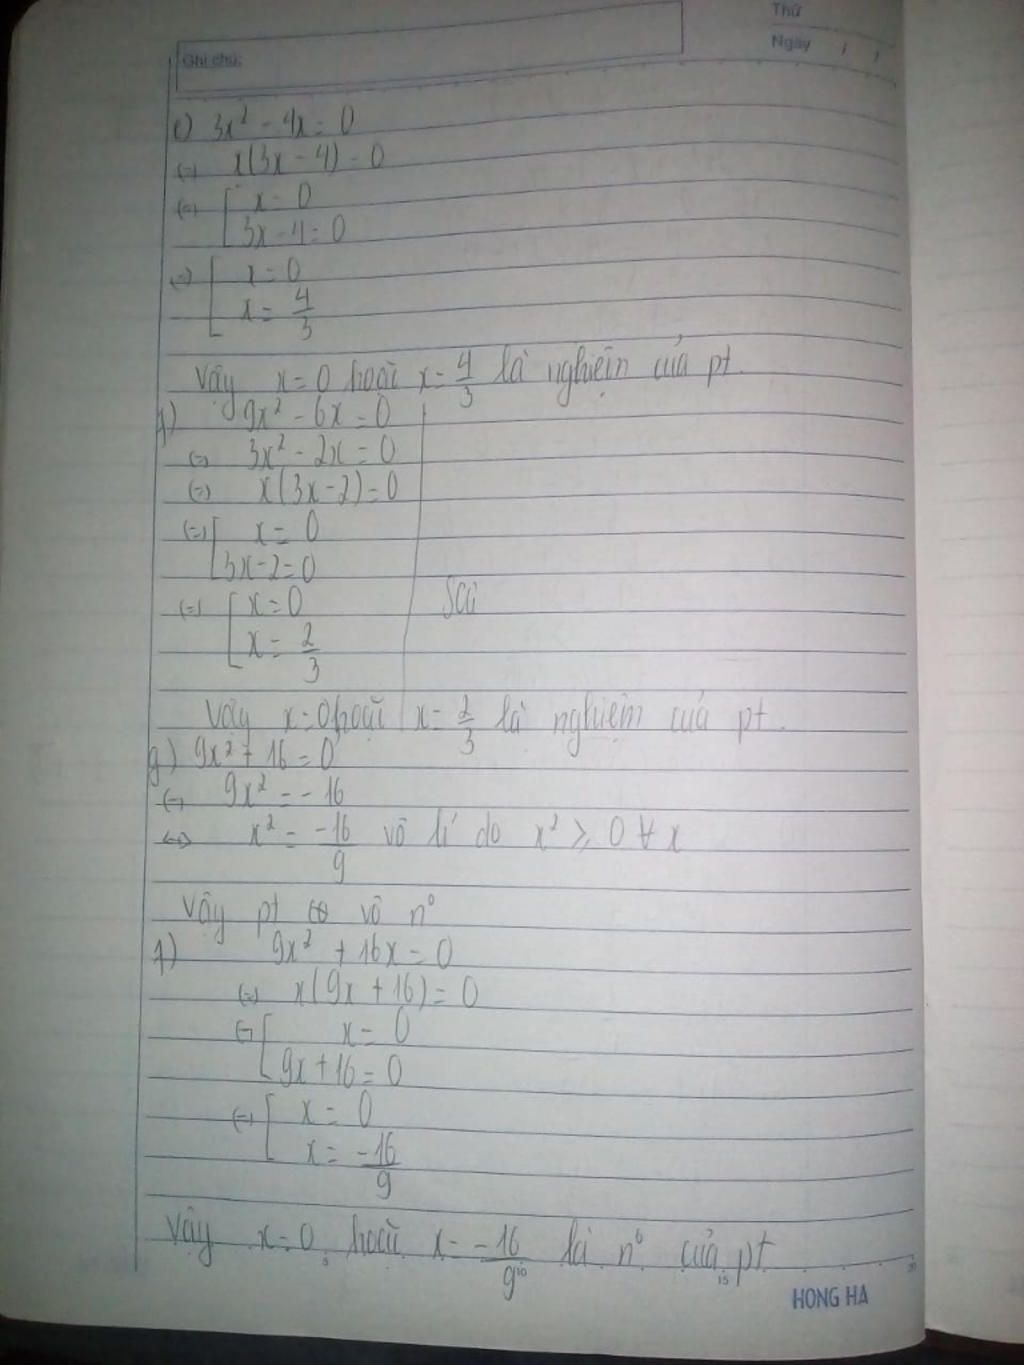 Thứ
Ngày / /
Ghi chú:
e) 3x² - 4x = 0
(=) x(3x - 4) = 0
(=) [ x = 0
3x - 4 = 0
(=) [ x = 0
x = 4/3
Vậy x = 0 hoặc x = 4/3 là nghiệm của pt.
f) 9x² - 6x = 0
(=) 3x² - 2x = 0
(=) x(3x - 2) = 0
(=) [ x = 0
3x - 2 = 0
(=) [ x = 0
x = 2/3
Vậy x = 0 hoặc x = 2/3 là nghiệm của pt.
g) 9x² + 16 = 0
(=) 9x² = -16
<=> x² = -16/9 vô lí do x² ≥ 0 ∀ x
Vậy pt vô n°
f) 9x² + 16x = 0
(=) x(9x + 16) = 0
(=) [ x = 0
9x + 16 = 0
(=) [ x = 0
x = -16/9
Vậy x = 0 hoặc x = -16/9 là n° của pt
5 10 15 20
HONG HA